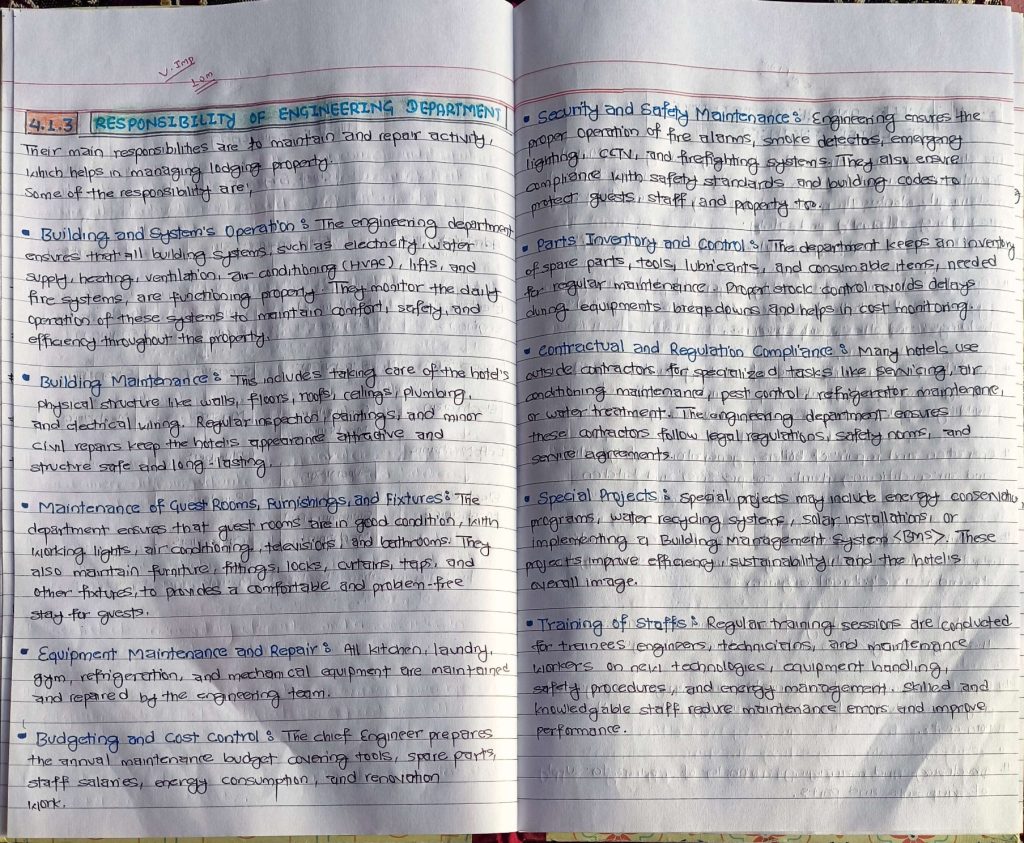 V. Imp
10m
4.1.3 RESPONSIBILITY OF ENGINEERING DEPARTMENT
Their main responsibilities are to maintain and repair activity,
which helps in managing lodging property.
Some of the responsibility are;
• Building and System's Operation: The engineering department
ensures that all building systems, such as electricity, water
supply, heating, ventilation, air conditioning (HVAC), lifts, and
fire systems, are functioning property. They monitor the daily
operation of these systems to maintain comfort, safety, and
efficiency throughout the property.
• Building Maintenance: This includes taking care of the hotel's
physical structure like walls, floors, roofs, ceilings, plumbing,
and electrical wiring. Regular inspection, paintings, and minor
civil repairs keep the hotel's appearance attractive and
structure safe and long-lasting.
• Maintenance of Guest Rooms, Furnishings, and Fixtures: The
department ensures that guest rooms are in good condition, with
working lights, air conditioning, televisions, and bathrooms. They
also maintain furniture, fittings, locks, curtains, taps, and
other fixtures, to provides a comfortable and problem-free
stay for guests.
• Equipment Maintenance and Repair: All kitchen, laundry,
gym, refrigeration, and mechanical equipment are maintained
and repaired by the engineering team.
• Budgeting and Cost Control: The chief Engineer prepares
the annual maintenance budget covering tools, spare parts,
staff salaries, energy consumption, and renovation
work.
• Security and Safety Maintenance: Engineering ensures the
proper operation of fire alarms, smoke detectors, emergency
lighting, CCTV, and firefighting systems. They also ensure
compliance with safety standards and building codes to
protect guests, staff, and property too.
• Parts Inventory and Control: The department keeps an inventory
of spare parts, tools, lubricants, and consumable items, needed
for regular maintenance. Proper stock control avoids delays
during equipments breakdowns and helps in cost monitoring.
• Contractual and Regulation Compliance: Many hotels use
outside contractors for specialized tasks like servicing, air
conditioning maintenance, pest control, refrigerator maintenance,
or water treatment. The engineering department ensures
these contractors follow legal regulations, safety norms, and
service agreements.
• Special Projects: Special projects may include energy conservation
programs, water recycling systems, solar installations, or
implementing a Building Management System <BMS>. These
projects improve efficiency, sustainability, and the hotel's
overall image.
• Training of Staffs: Regular training sessions are conducted
for trainees engineers, technicians, and maintenance
workers on new technologies, equipment handling,
safety procedures, and energy management. Skilled and
knowledgable staff reduce maintenance errors and improve
performance.